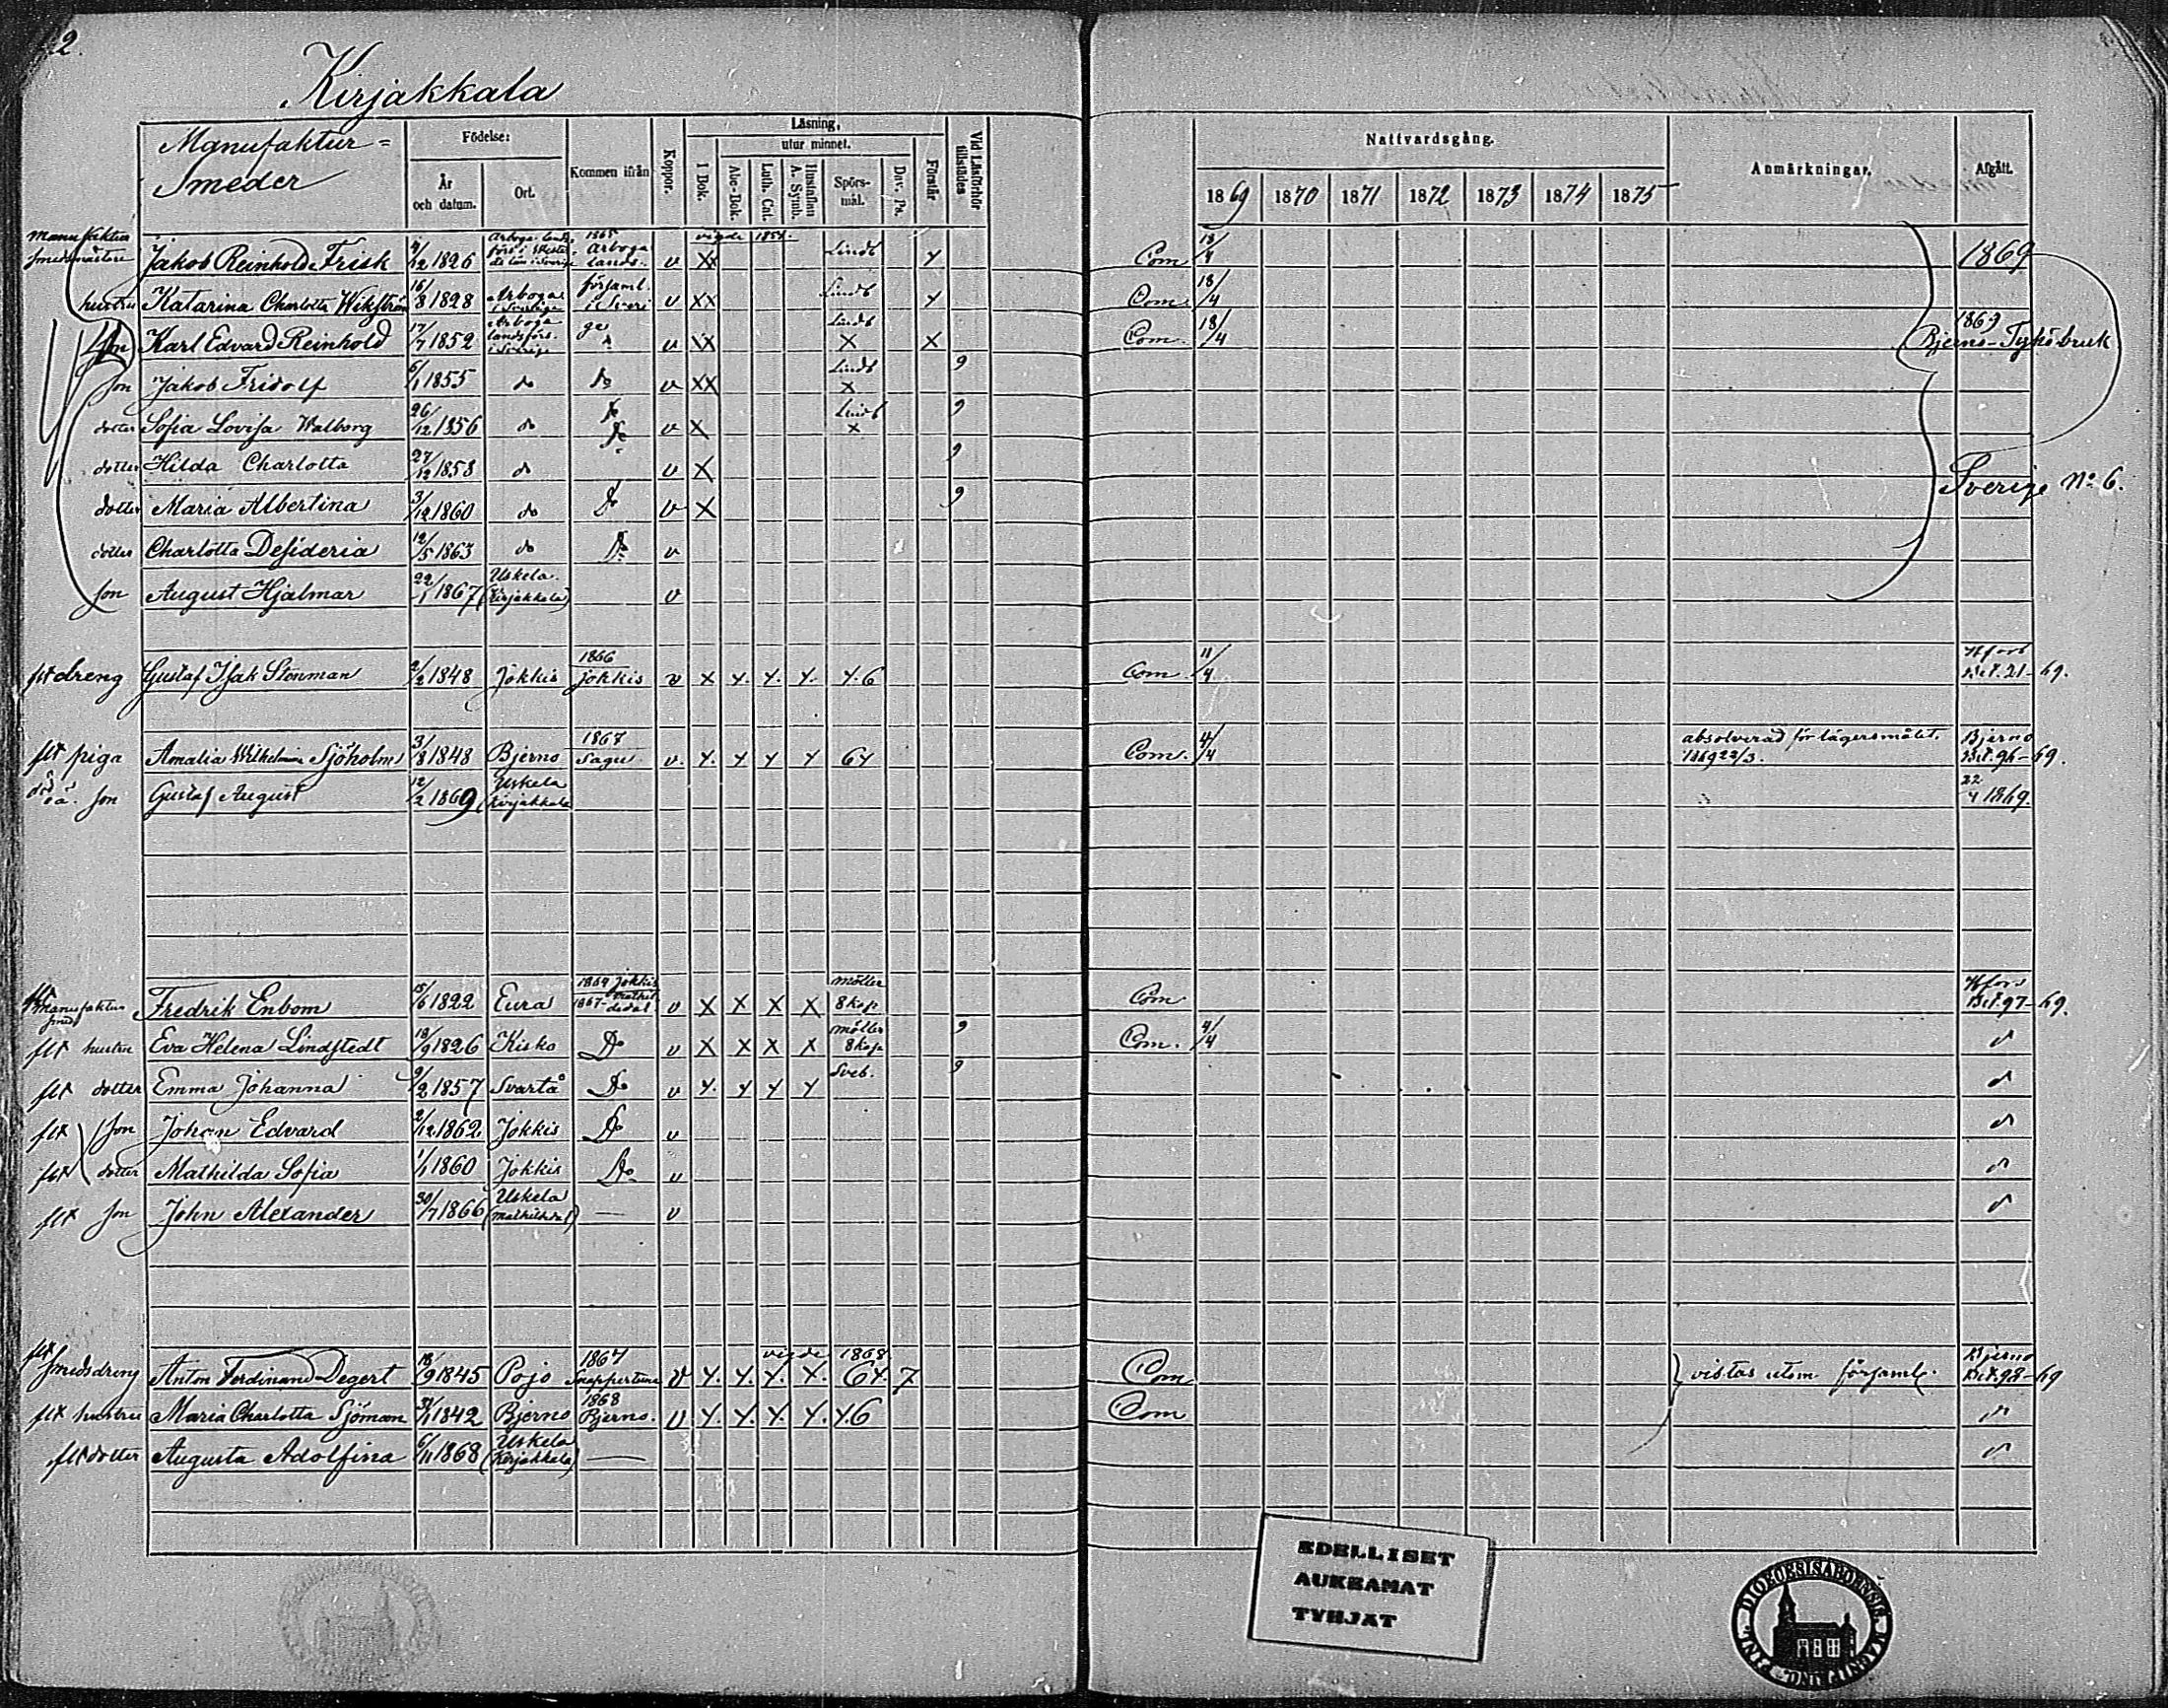 2.
Kirjakkala
Manufaktur=
Smeder
Födelse:
År
och datum.
Ort.
Kommen ifrån
Koppor.
Läsning,
utur minnet.
I Bok.
Abc-Bok.
Luth. Cat.
Hustaflan
A. Symb.
Spörs-
mål.
Dav. Ps.
Förstår
Vid Läsförhör
tillstädes
Nattvardsgång.
1869 1870 1871 1872 1873 1874 1875
Anmärkningar.
Afgått.
Manufaktur
smedmästare Jakob Reinhold Frisk 4/12 1826 1865 Arboga lands- v XX vigde 1854. Lindb Y Com 18/4 1869
hustru Katarina Charlotta Wikström 16/8 1828 Arboga i Sverige församl. i Sveri v XX Lindb Y Com. 18/4
son Karl Edvard Reinhold 17/7 1852 Arboga landsförs. i Sverige ge v XX Lindb X X Com. 18/4 1869 Bjerno-Tykö bruk
son Jakob Fridolf 6/1 1855 do do v XX Lindb X 9
dotter Sofia Lovisa Walborg 26/12 1856 do do v X Lindb X 9
dotter Hilda Charlotta 27/12 1858 do do v X 9
Sverige No 6.
dotter Maria Albertina 3/12 1860 do do v X 9
dotter Charlotta Desideria 12/5 1863 do Do v
son August Hjalmar 22/1 1867 Uskela (Kirjakkala) v
flt dreng Gustaf Isak Stenman 2/2 1848 Jokkis 1866 Jokkis v X Y. Y. Y. Y.6 Com 11/4 Hfors Bet. 21-69.
flt piga Amalia Wilhelmina Sjöholm 3/8 1848 Bjerno 1867 Sagu v. Y. Y Y Y 6Y Com. 4/4 absolverad för lägersmålet. 1869 22/3. Bjerno Bet. 96-69.
död oä. son Gustaf August 12/2 1869 Uskela (Kirjakkala 22/4 1869.
flt Manufaktur smed Fredrik Enbom 15/6 1822 Eura 1864 Jokkis 1867- Mathildedal. v X X X X Möller 8 kap Com Hfors Bet. 97-69.
flt hustru Eva Helena Lindstedt 18/9 1826 Kisko Do v X X X X Möller 8 kap 9 Com. 4/4
flt dotter Emma Johanna 9/2 1857 Svartå Do v Y. Y Y Y Sveb. 9
flt son Johan Edvard 2/12 1862 Jokkis Do v
flt dotter Mathilda Sofia 1/1 1860 Jokkis Do v
flt son John Alexander 30/7 1866 Uskela (Mathildedal) — v
flt Smedsdreng Anton Ferdinand Degert 18/9 1845 Pojo 1867 Snappertuna v Y. Y. Y. Y. vigde 1868 6Y. 7 Com vistas utom församl. Bjerno Bet. 98-69
flt hustru Maria Charlotta Sjöman 31/1 1842 Bjerno 1868 Bjerno. v Y. Y. Y. Y. Y.6 Com
flt dotter Augusta Adolfina 6/11 1868 Uskela (Kirjakkala) —
EDELLISET
AUKEAMAT
TYHJÄT